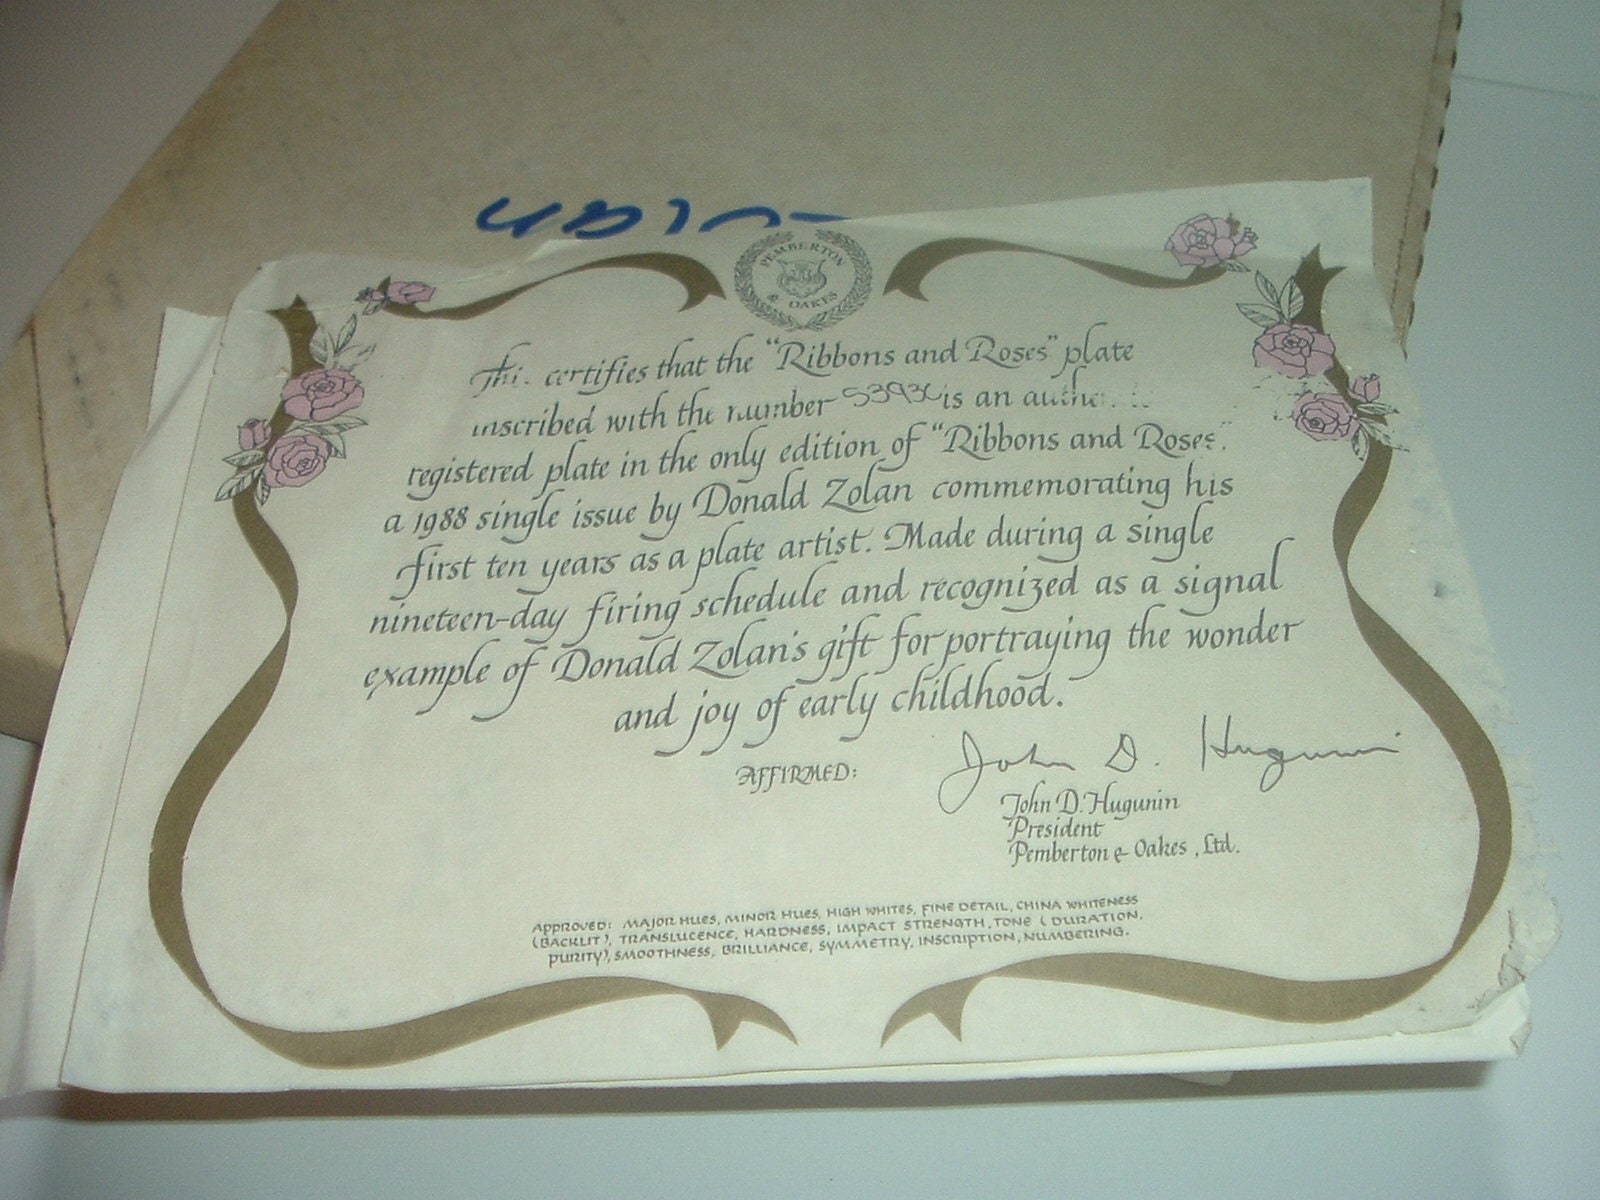 PEMBERTON & OAKES
This certifies that the "Ribbons and Roses" plate
inscribed with the number is an
registered plate in the only edition of "Ribbons and Roses",
a 1988 single issue by Donald Zolan commemorating his
first ten years as a plate artist. Made during a single
nineteen-day firing schedule and recognized as a signal
example of Donald Zolan's gift for portraying the wonder
and joy of early childhood.
AFFIRMED: John D. Hugunin
John D. Hugunin
President
Pemberton & Oakes, Ltd.
APPROVED: MAJOR HUES, MINOR HUES, HIGH WHITES, FINE DETAIL, CHINA WHITENESS
(BACKLIT), TRANSLUCENCE, HARDNESS, IMPACT STRENGTH, TONE (DURATION,
PURITY), SMOOTHNESS, BRILLIANCE, SYMMETRY, INSCRIPTION, NUMBERING.